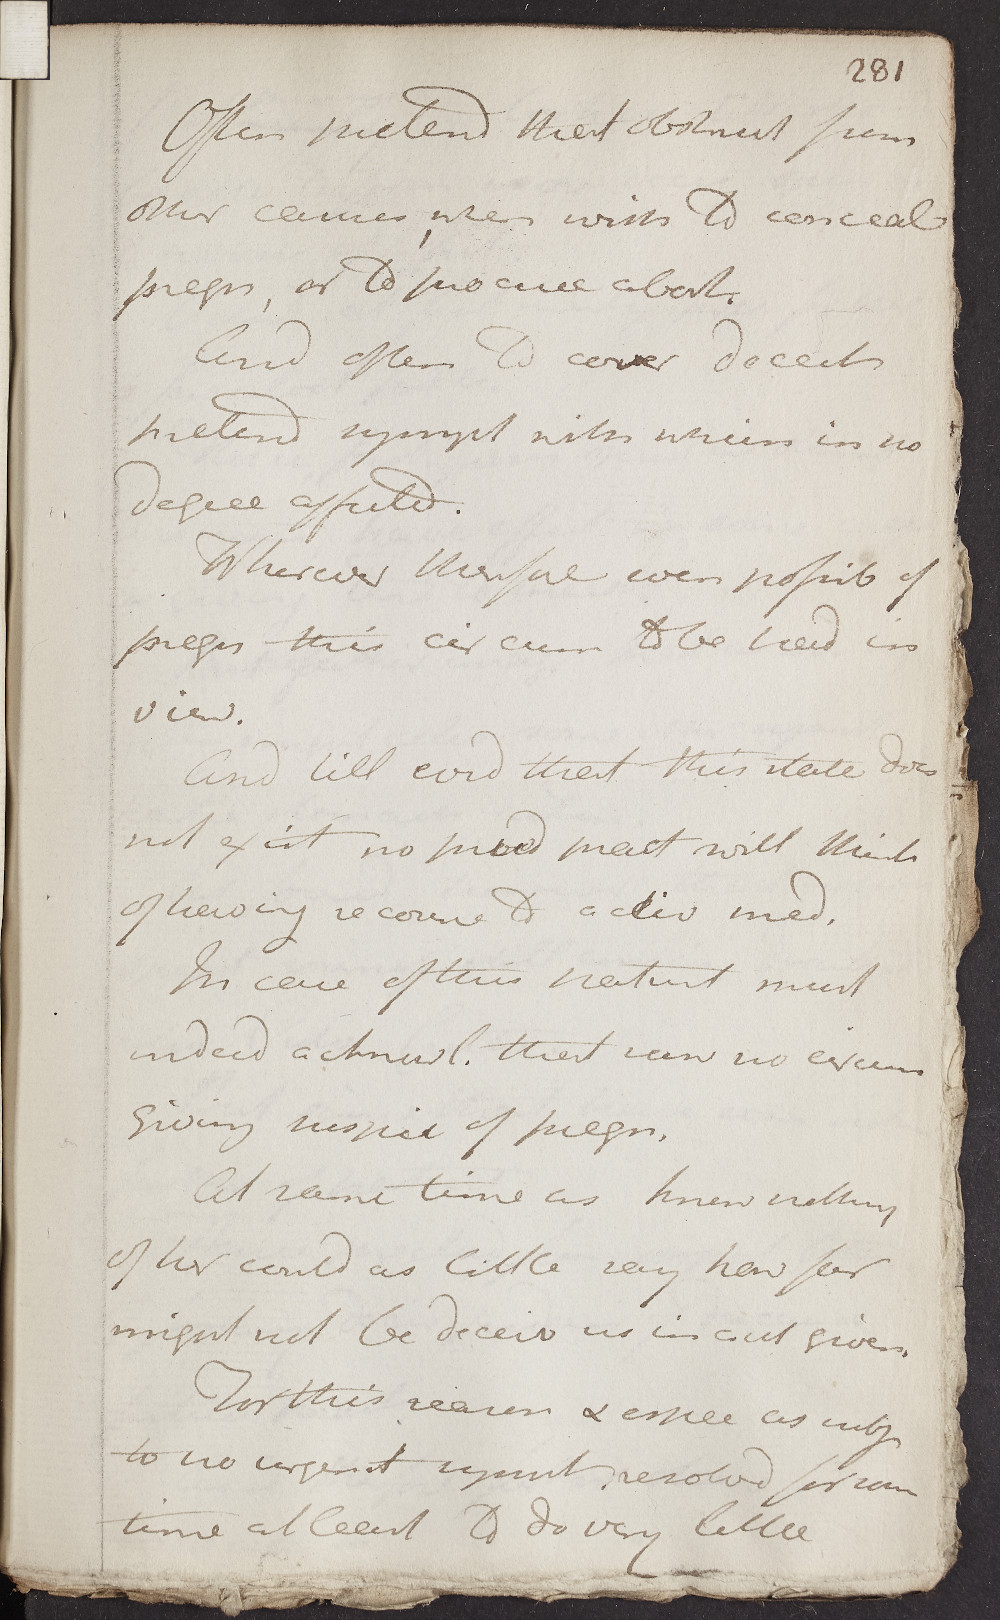 281
Often pretend that obstruct from
other causes, when wish to conceal
pregn, or to procure abort.
And often to cover deceit
pretend sympt with which in no
degree affected.
Wherever therefore even possib of
pregn this circum to be had in
view.
And till evid that this state does
not exist no prud pract will think
of having recourse to activ med.
In case of this nature must
indeed acknowl. that saw no circum
giving suspic of pregn.
At same time as knew nothing
of her could as little say how far
might not be deceiv us in acct given.
For this reason & espec as subj
to no urgent sympt, resolved for some
time at least to do very little